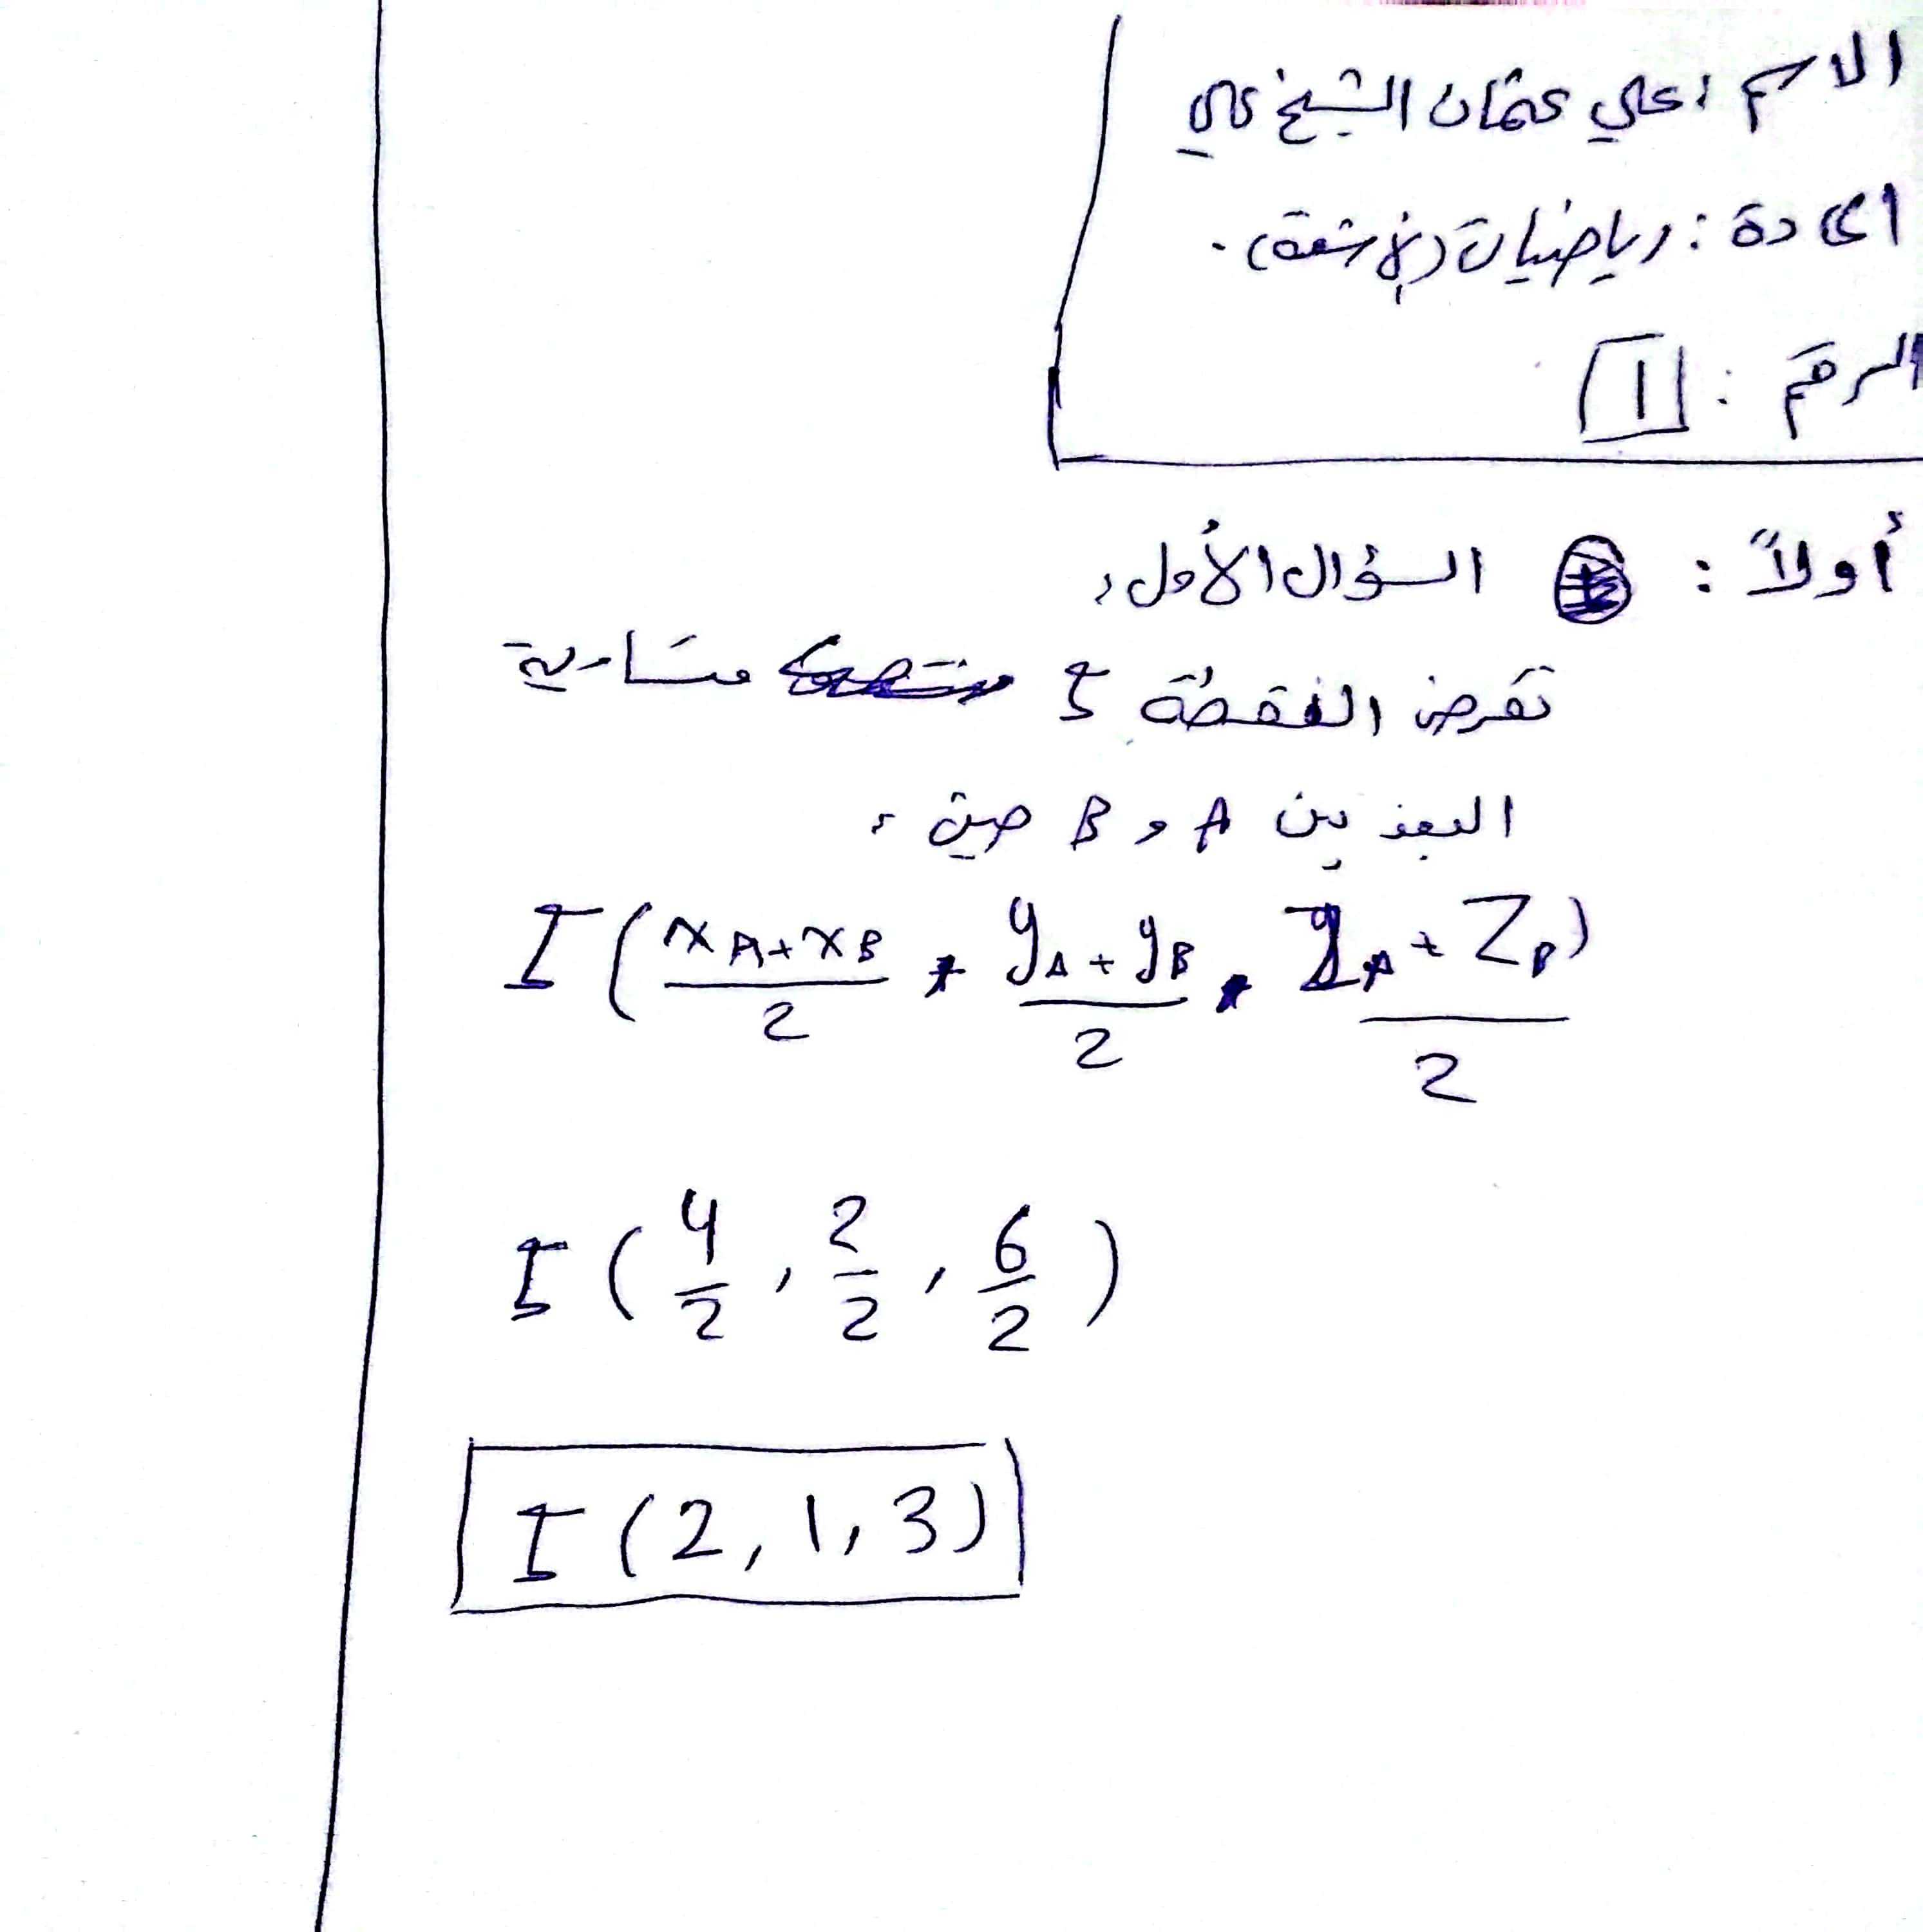 الاسم : علي عثمان الشيخ علي
المادة : رياضيات (الأشعة) .
الرقم : 1
أولاً : السؤال الأول :
نفرض النقطة I متساوية
البعد بين A و B حيث :
I ( \frac{x_A + x_B}{2} , \frac{y_A + y_B}{2} , \frac{z_A + z_B}{2} )
I ( \frac{4}{2} , \frac{2}{2} , \frac{6}{2} )
I (2, 1, 3)